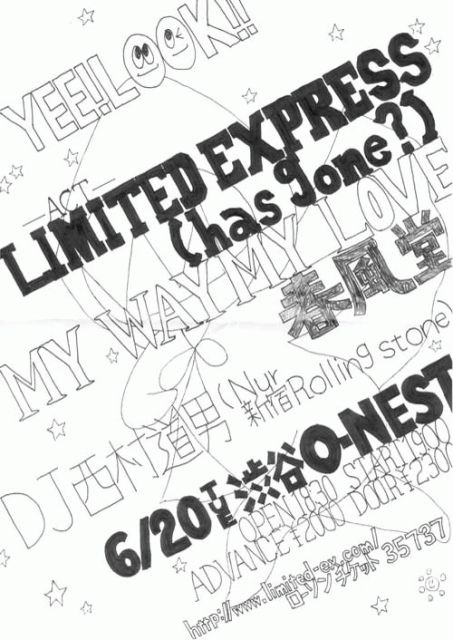 YEE!!LOOK!!
ACT
LIMITED EXPRESS
(has gone?)
MY WAY MY LOVE
春風堂
DJ西村道男(Nur
新宿Rolling stone)
6/20TUE渋谷O-NEST
OPEN1830 START1900
ADVANCE¥2000 DOOR¥2300
http://www.limited-ex.com/
ローソンチケット 35737